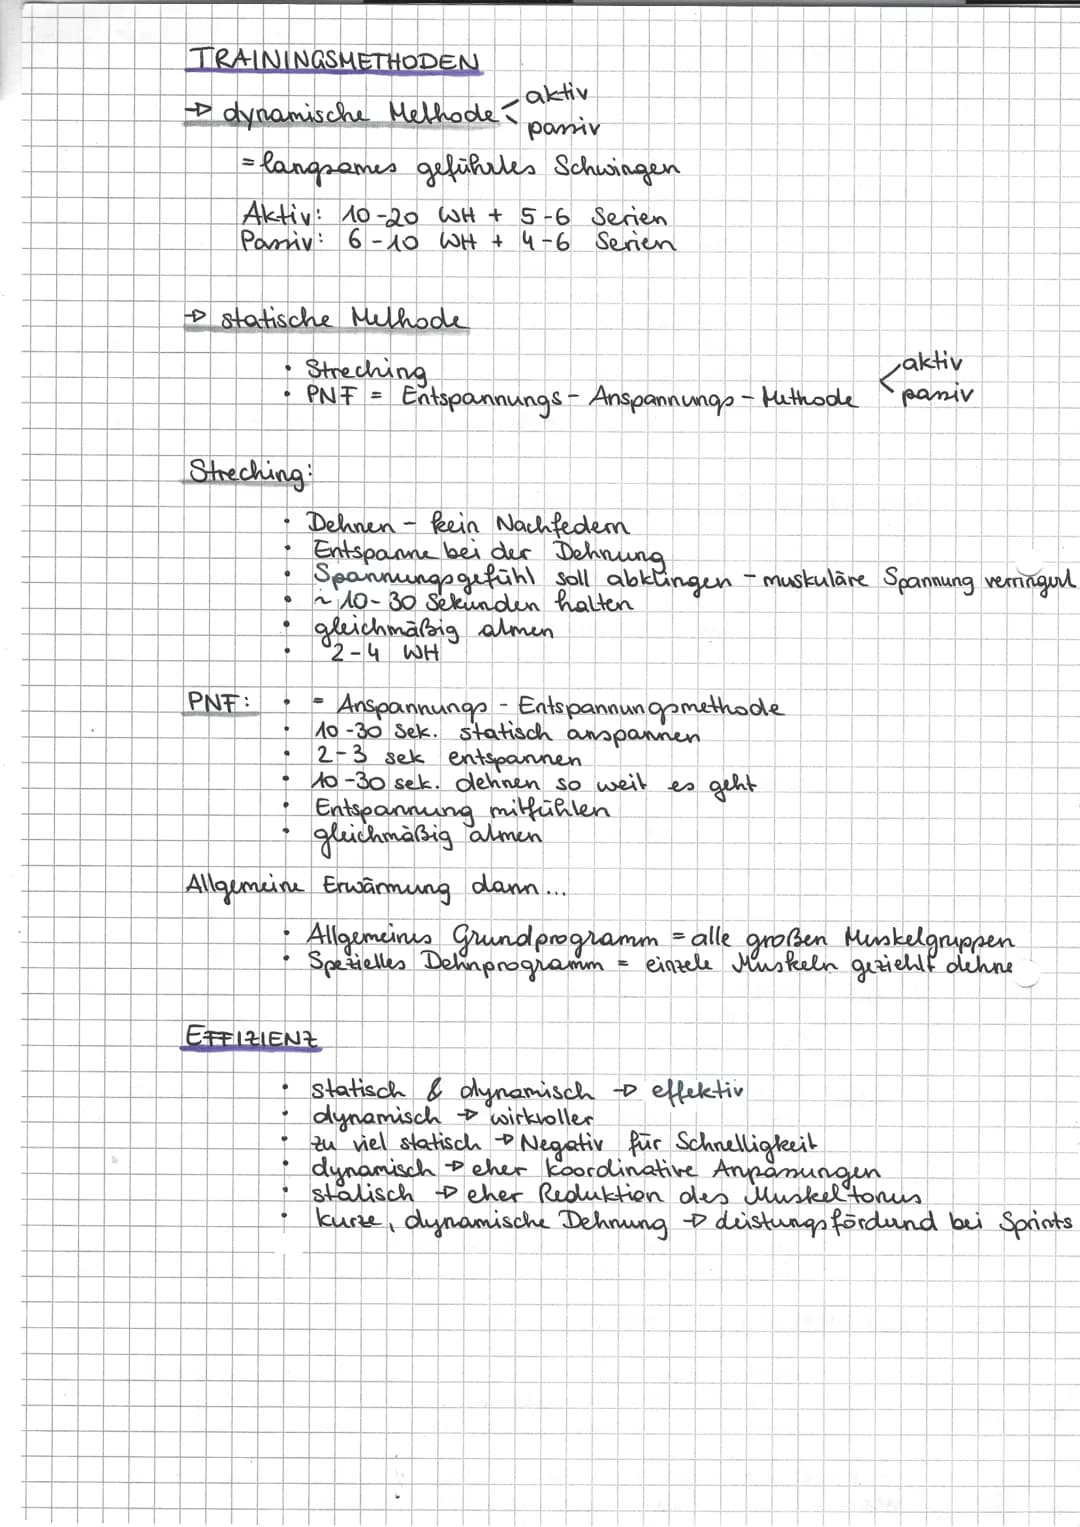 TRAININGSMETHODEN
→ dynamische Methode < aktiv
passiv
= langsames geführtes Schwingen
Aktiv: 10-20 WH + 5-6 Serien
Passiv: 6-10 WH + 4-6 Serien
→ statische Methode
• Streching
• PNF = Entspannungs - Anspannungs - Methode < aktiv
passiv
Streching:
• Dehnen - kein Nachfedern
• Entspanne bei der Dehnung
• Spannungsgefühl soll abklingen - muskuläre Spannung verringert
• ~ 10-30 Sekunden halten
• gleichmäßig atmen
• 2-4 WH
PNF: • = Anspannungs - Entspannungsmethode
• 10-30 Sek. statisch anspannen
• 2-3 sek entspannen
• 10-30 sek. dehnen so weit es geht
• Entspannung mitfühlen
• gleichmäßig atmen
Allgemeine Erwärmung dann...
• Allgemeines Grundprogramm = alle großen Muskelgruppen
• Spezielles Dehnprogramm = einzele Muskeln geziehlt dehne
EFFIZIENZ
• statisch & dynamisch → effektiv
• dynamisch → wirkvoller
• zu viel statisch → Negativ für Schnelligkeit
• dynamisch → eher koordinative Anpassungen
• statisch → eher Reduktion des Muskeltonus
• kurze, dynamische Dehnung → leistungsfördernd bei Sprints